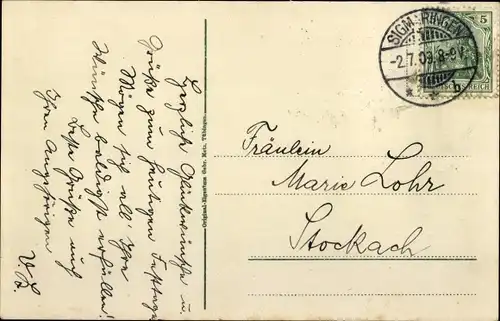 Herzliche Glückwünsche u.
Grüße zum heutigen Festtage
Mögen sich all' Ihre
Wünsche baldigst erfüllen!
Beste Grüße auch
Ihren Angehörigen
Original-Eigentum Gebr. Metz, Tübingen.
SIGMARINGEN
-2.7.09.8-9V.
* b
5
DEUTSCHES REICH
Fräulein
Marie Lohr
Stockach